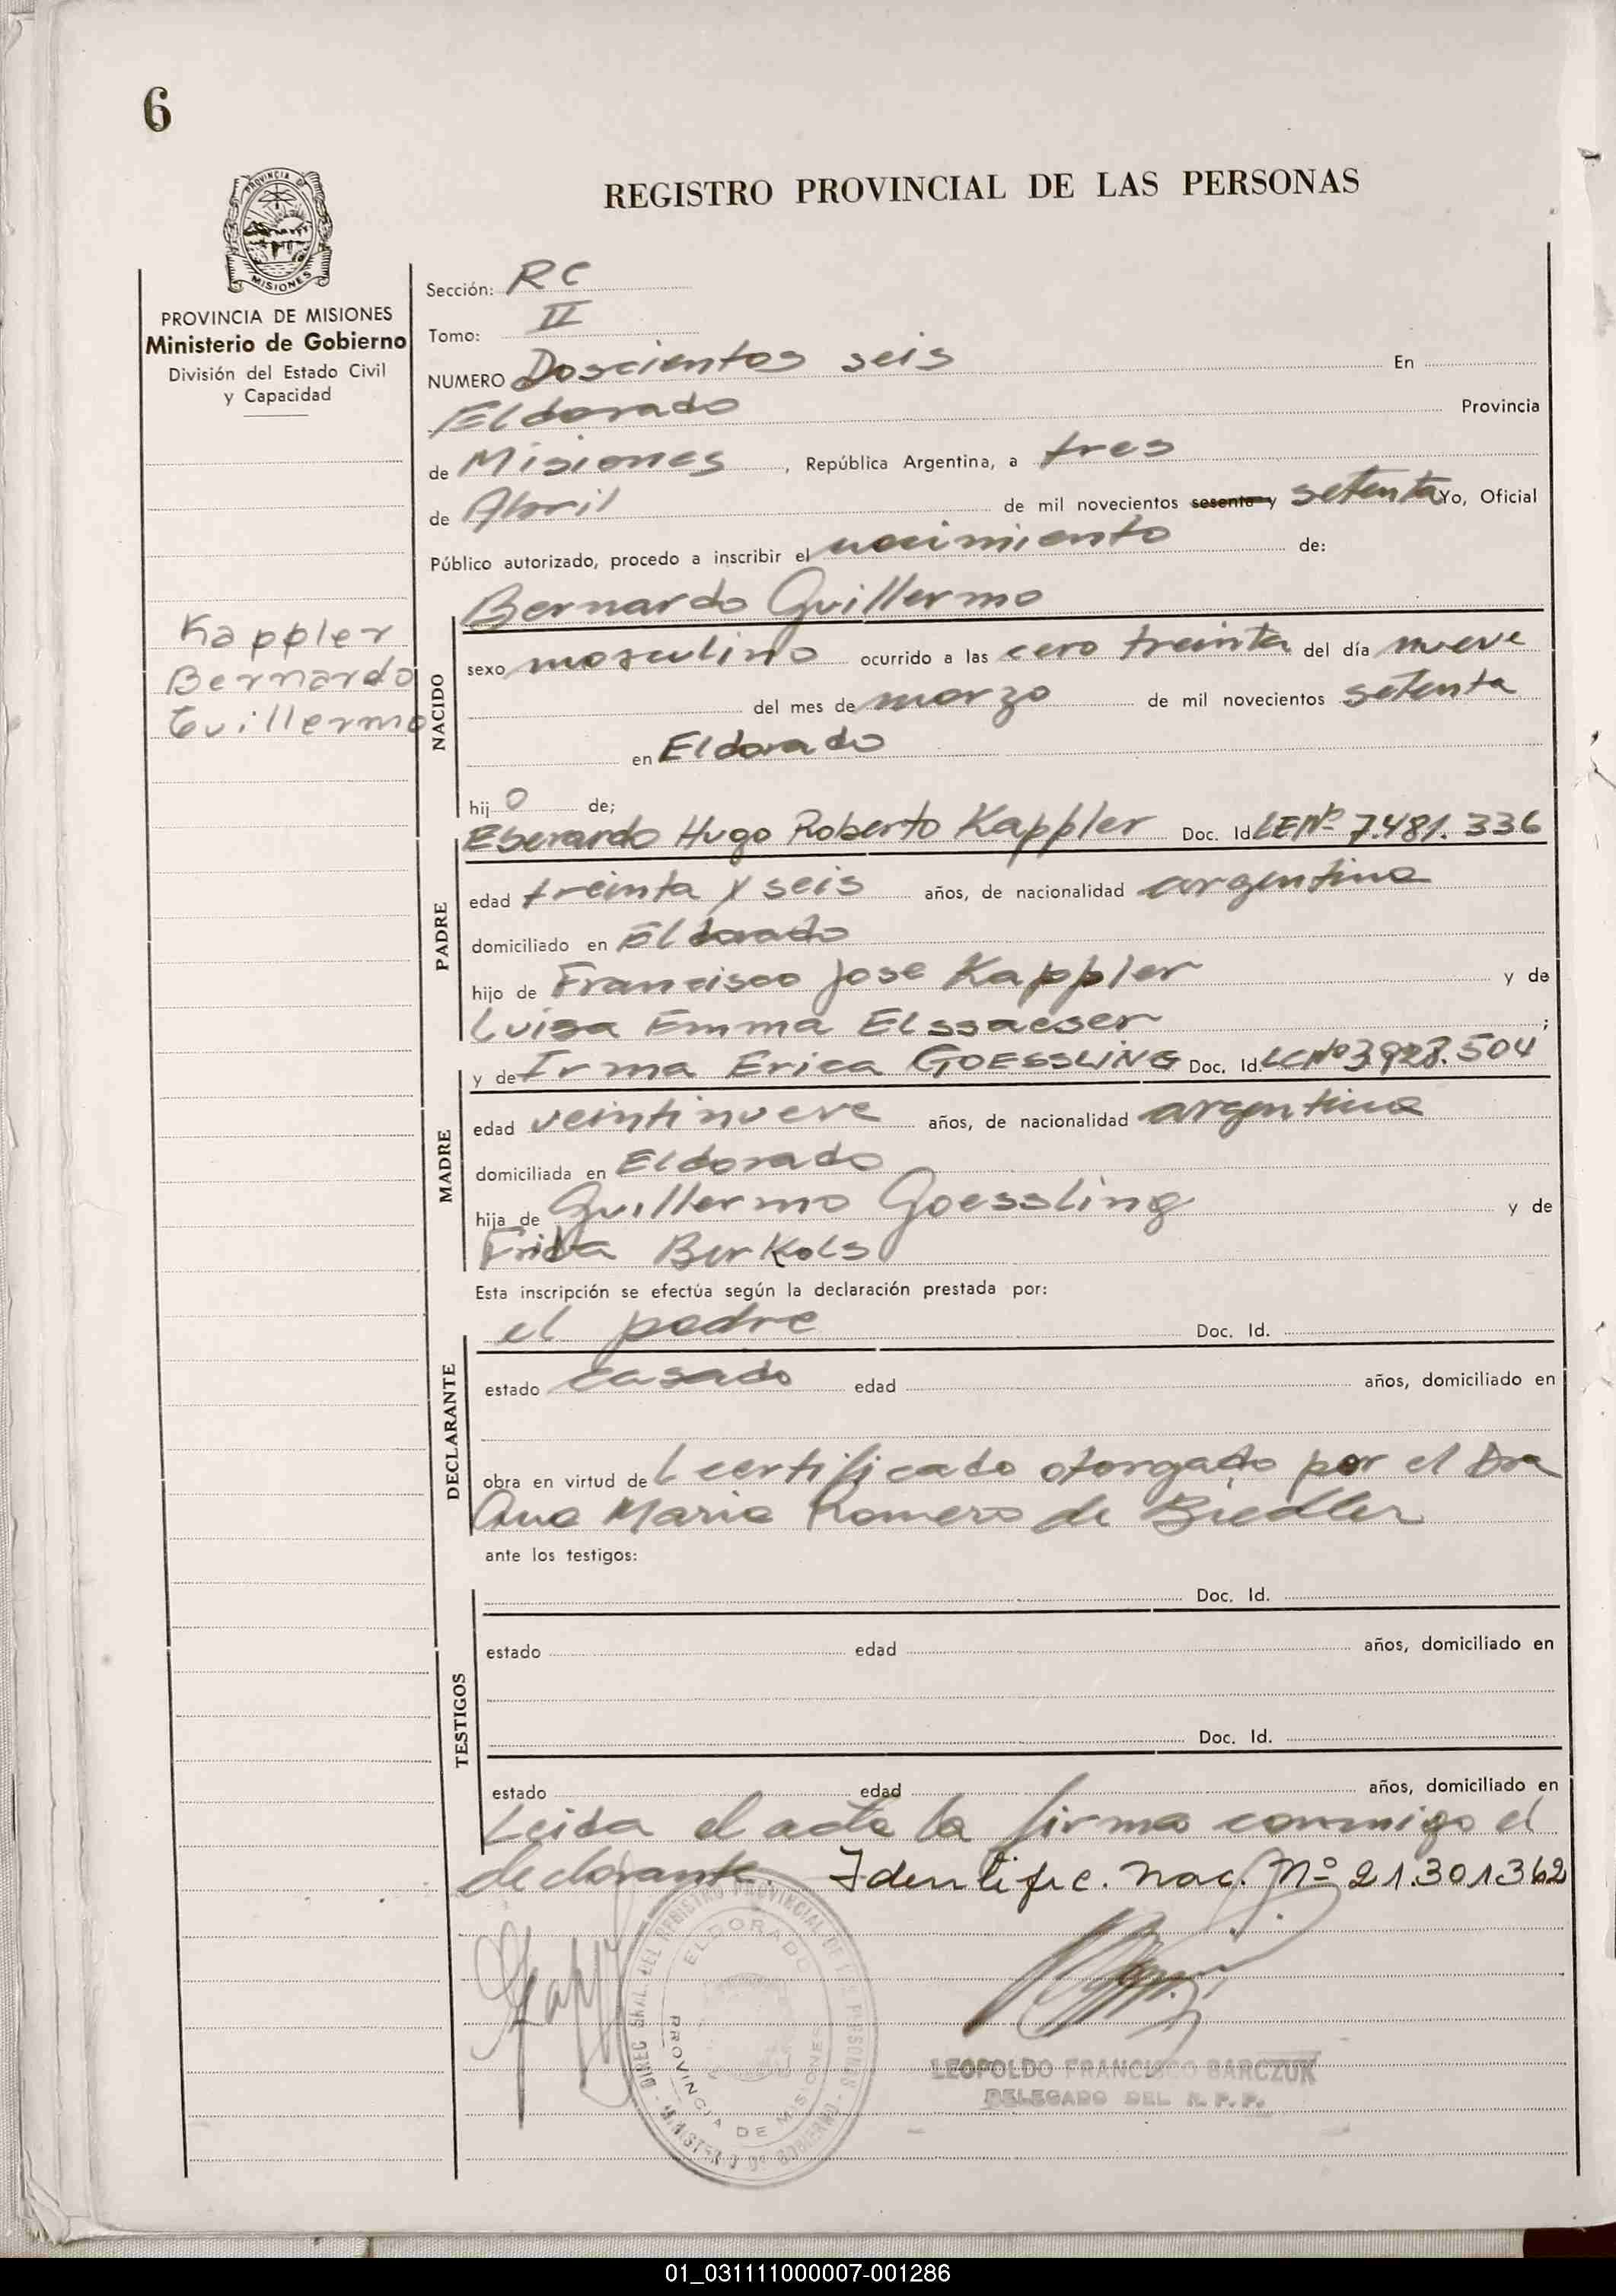 6
PROVINCIA DE MISIONES
REGISTRO PROVINCIAL DE LAS PERSONAS
PROVINCIA DE MISIONES
Ministerio de Gobierno
División del Estado Civil
y Capacidad
Kappler
Bernardo
Guillermo
Sección: RC
Tomo: II
NUMERO Doscientos seis En
Eldorado Provincia
de Misiones, República Argentina, a tres
de Abril de mil novecientos sesenta y setenta Yo, Oficial
Público autorizado, procedo a inscribir el nacimiento de:
Bernardo Guillermo
NACIDO
sexo masculino ocurrido a las cero treinta del día nueve
del mes de marzo de mil novecientos setenta
en Eldorado
hij o de;
PADRE
Eberardo Hugo Roberto Kappler Doc. Id. LE Nº 7.481.336
edad treinta y seis años, de nacionalidad argentina
domiciliado en Eldorado
hijo de Francisco Jose Kappler y de
Luisa Emma Elssaeser ;
MADRE
y de Irma Erica GOESSLING Doc. Id. LC Nº 3.928.504
edad veintinueve años, de nacionalidad argentina
domiciliada en Eldorado
hija de Guillermo Goessling y de
Frida Burkols
Esta inscripción se efectúa según la declaración prestada por:
DECLARANTE
el padre Doc. Id.
estado casado edad años, domiciliado en
obra en virtud del certificado otorgado por el Dra
Ana Maria Romero de Biedler
ante los testigos:
TESTIGOS
Doc. Id.
estado edad años, domiciliado en
Doc. Id.
estado edad años, domiciliado en
Leida el acta la firma conmigo el
declarante. Identific. nac. Nº 21.301362
DIREC. GRAL. DEL REGISTRO PROVINCIAL DE LAS PERSONAS - MINISTERIO DE GOBIERNO -
ELDORADO
PROVINCIA DE MISIONES
LEOPOLDO FRANCISCO BARCZUK
DELEGADO DEL R. P. P.
01_031111000007-001286